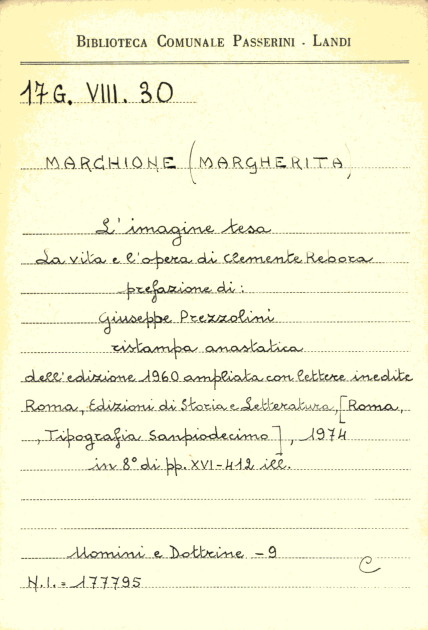 BIBLIOTECA COMUNALE PASSERINI - LANDI
17G. VIII. 30
MARCHIONE (MARGHERITA)
L'imagine tesa
La vita e l'opera di Clemente Rebora
prefazione di:
Giuseppe Prezzolini
ristampa anastatica
dell'edizione 1960 ampliata con lettere inedite
Roma, Edizioni di Storia e Letteratura, [Roma,
, Tipografia Sanpiodecimo], 1974
in 8° di pp. XVI-412 ill.
Uomini e Dottrine - 9
C
N.I.= 177795